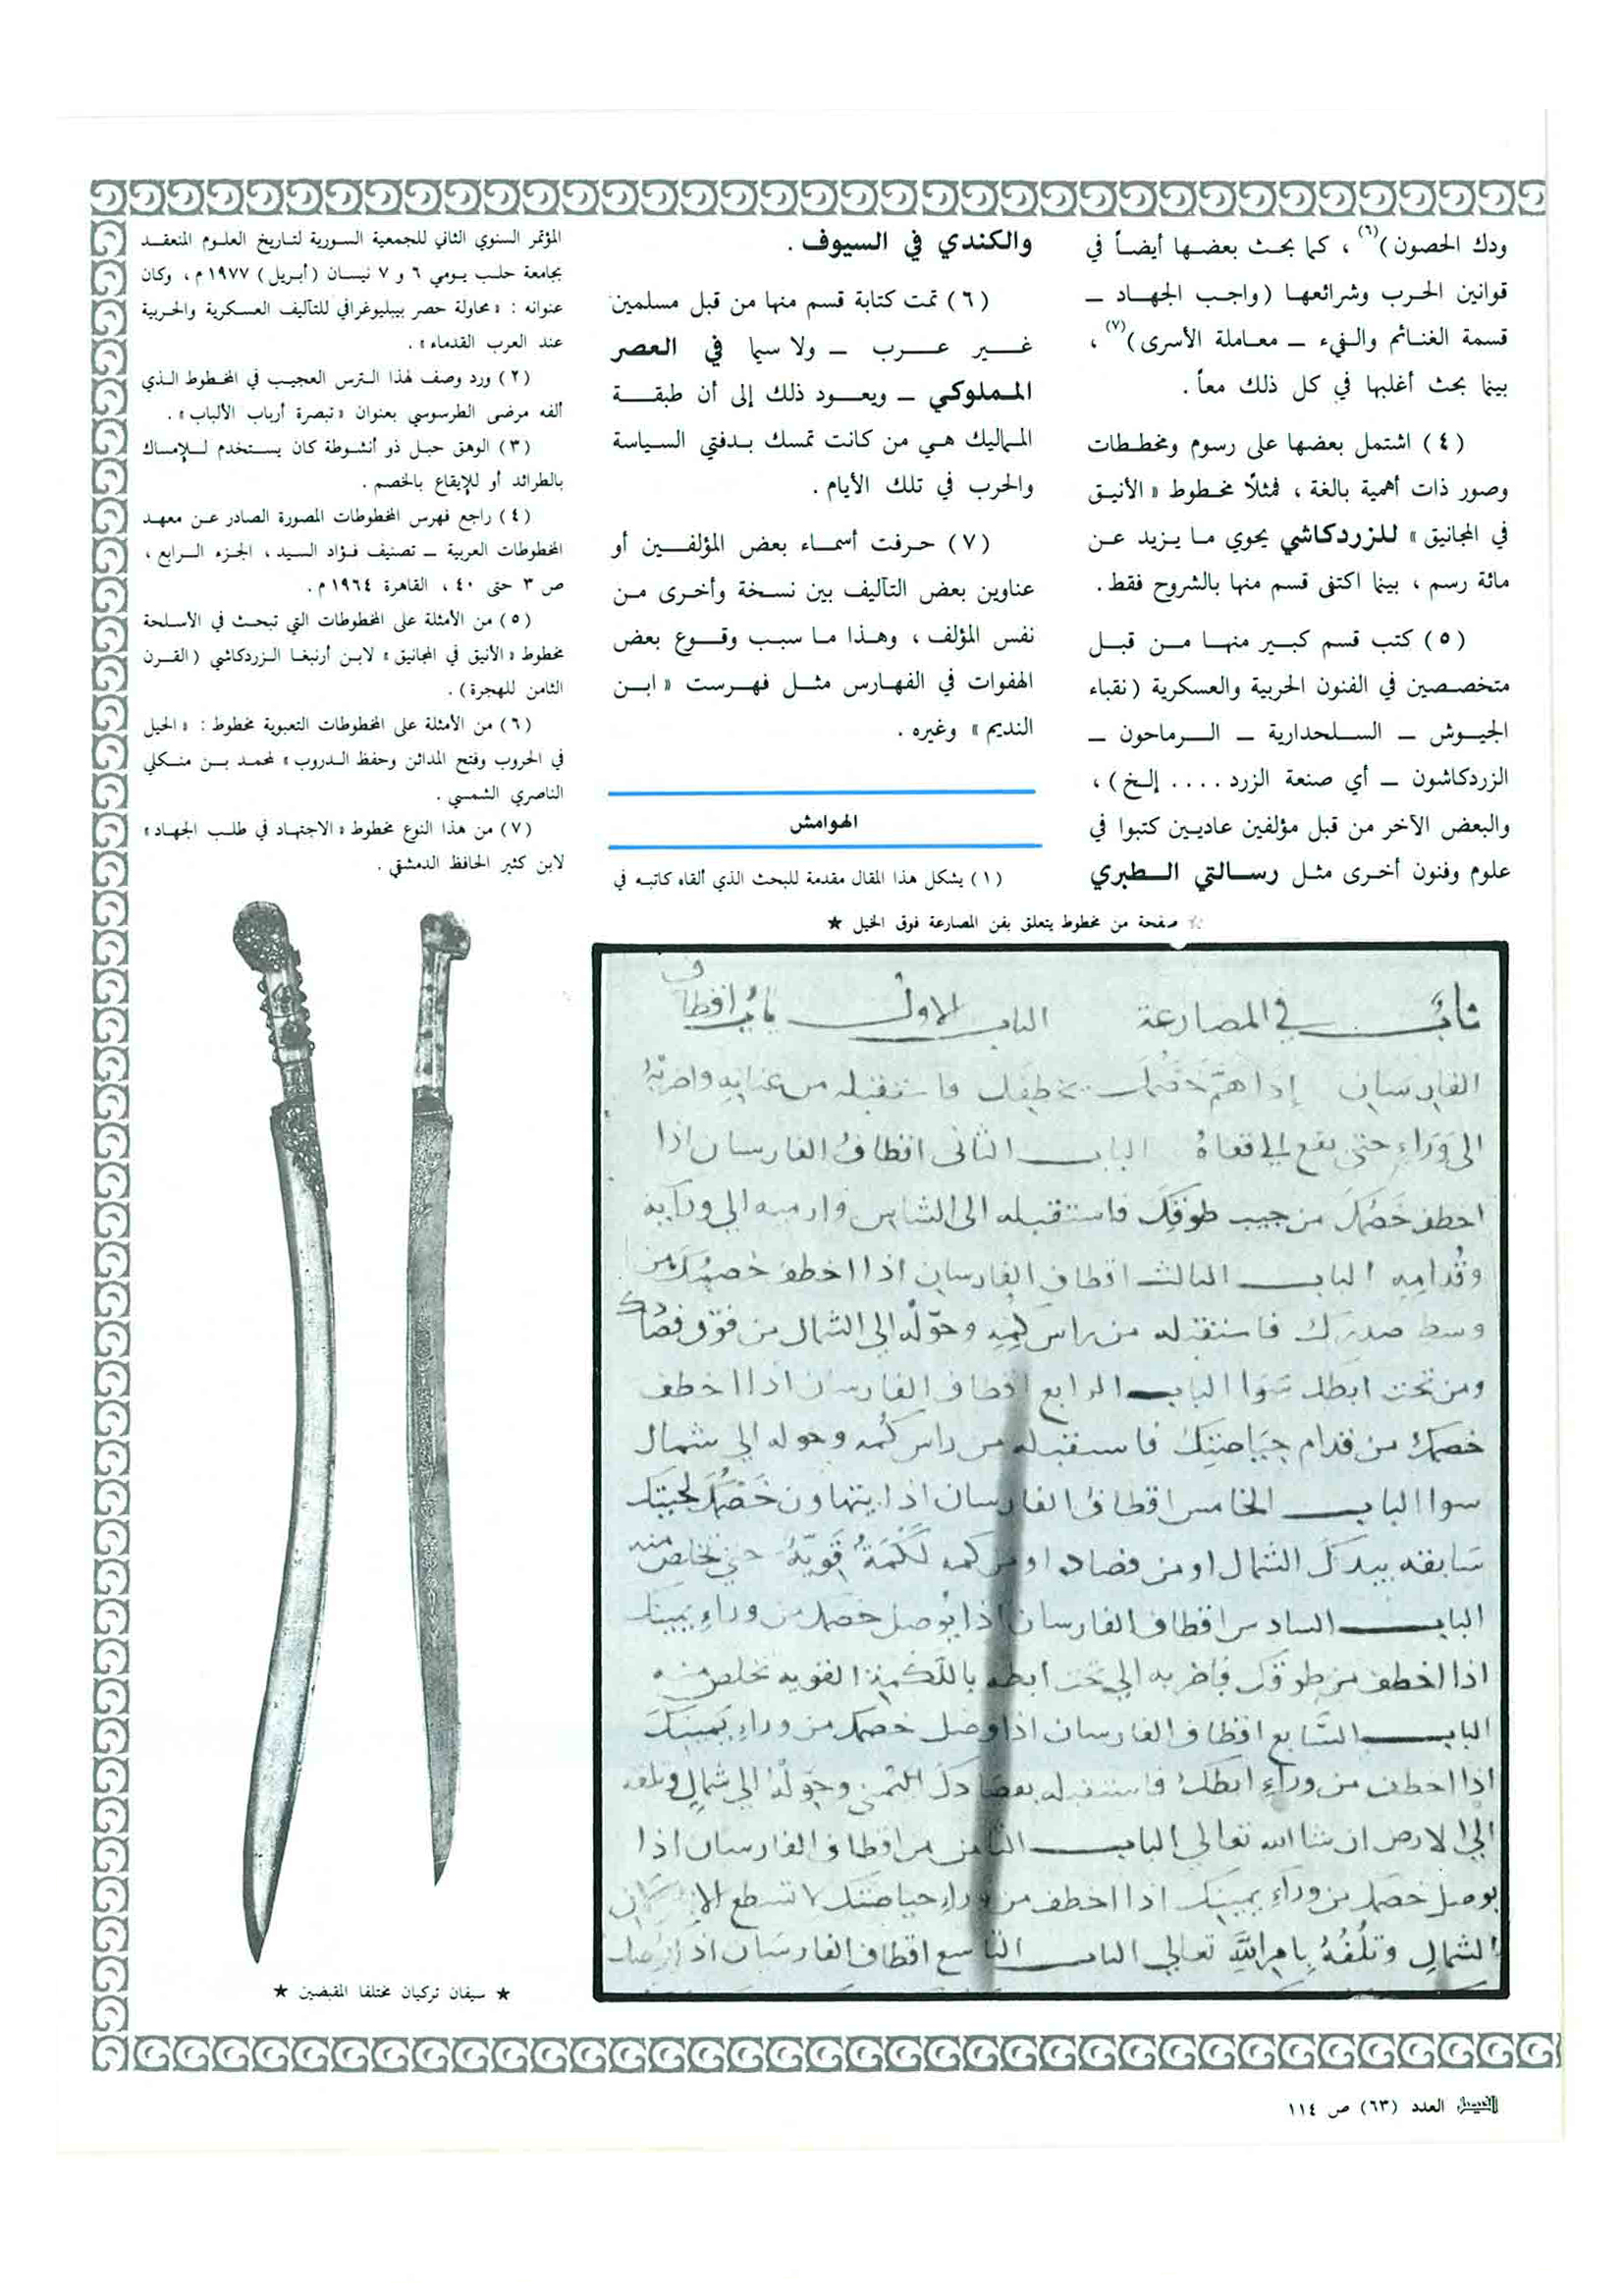 ودك الحصون)(٦) ، كما بحث بعضها أيضاً في
قوانين الحرب وشرائعها (واجب الجهاد ــ
قسمة الغنائم والفيء ــ معاملة الأسرى)(٧) ،
بينما بحث أغلبها في كل ذلك معاً .
(٤) اشتمل بعضها على رسوم ومخططات
وصور ذات أهمية بالغة ، فمثلاً مخطوط « الأنيق
في المجانيق » للزردكاشي يحوي ما يزيد عن
مائة رسم ، بينما اكتفى قسم منها بالشروح فقط .
(٥) كتب قسم كبير منها من قبل
متخصصين في الفنون الحربية والعسكرية (نقباء
الجيوش ــ السلحدارية ــ الرماحون ــ
الزردكاشون ــ أي صنعة الزرد .... إلخ) ،
والبعض الآخر من قبل مؤلفين عاديين كتبوا في
علوم وفنون أخرى مثل رسالتي الطبري
والكندي في السيوف .
(٦) تمت كتابة قسم منها من قبل مسلمين
غير عرب ــ ولا سيما في العصر
المملوكي ــ ويعود ذلك إلى أن طبقة
المماليك هي من كانت تمسك بدفتي السياسة
والحرب في تلك الأيام .
(٧) حرفت أسماء بعض المؤلفين أو
عناوين بعض التآليف بين نسخة وأخرى من
نفس المؤلف ، وهذا ما سبب وقوع بعض
الهفوات في الفهارس مثل فهرست « ابن
النديم » وغيره .
الهوامش
(١) يشكل هذا المقال مقدمة للبحث الذي ألقاه كاتبه في
المؤتمر السنوي الثاني للجمعية السورية لتاريخ العلوم المنعقد
بجامعة حلب يومي ٦ و ٧ نيسان (أبريل) ١٩٧٧ م ، وكان
عنوانه : « محاولة حصر بيبليوغرافي للتآليف العسكرية والحربية
عند العرب القدماء » .
(٢) ورد وصف لهذا الترس العجيب في المخطوط الذي
ألفه مرضى الطرسوسي بعنوان « تبصرة أرباب الألباب » .
(٣) الوهق حبل ذو أنشوطة كان يستخدم للإمساك
بالطرائد أو للإيقاع بالخصم .
(٤) راجع فهرس المخطوطات المصورة الصادر عن معهد
المخطوطات العربية ــ تصنيف فؤاد السيد ، الجزء الرابع ،
ص ٣ حتى ٤٠ ، القاهرة ١٩٦٤ م .
(٥) من الأمثلة على المخطوطات التي تبحث في الأسلحة
مخطوط « الأنيق في المجانيق » لابن أرنبغا الزردكاشي (القرن
الثامن للهجرة) .
(٦) من الأمثلة على المخطوطات التعبوية مخطوط : « الحيل
في الحروب وفتح المدائن وحفظ الدروب » لمحمد بن منكلي
الناصري الشمسي .
(٧) من هذا النوع مخطوط « الاجتهاد في طلب الجهاد »
لابن كثير الحافظ الدمشقي .
★ صفحة من مخطوط يتعلق بفن المصارعة فوق الخيل ★
في المصارعة الباب الاول باب اقطاف
الفارسان إذا هم خصمك فاستقبله من واضربه
الى وراء حتى يقع الى قفاه الباب الثاني اقطاف الفارسان اذا
اخطف خصمك من جيب طوقك فاستقبله الى الشماس وارميه الى ورايه
وقدامه الباب الثالث اقطاف الفارسان اذا اخطف خصمك من
وسط صدرك فاستقبله من راس كمه وحوله الى الشمال من فوق
ومن تحت ابطك سوا الباب الرابع اقطاف الفارسان اذا اخطف
خصمك من قدام حياصتك فاستقبله من راس كمه وحوله الى شمال
سوا الباب الخامس اقطاف الفارسان اذا يتهاون خصمك لحيتك
سابقه بيدك الشمال او من او من كمه لكمة قوية حتى تخلص منه
الباب السادس اقطاف الفارسان اذا يوصل خصمك من وراء يمينك
اذا اخطف من طوقك فاضربه الى تحت ابطه باللكمة القويه تخلص منه
الباب السابع اقطاف الفارسان اذا وصل خصمك من وراء يمينك
اذا اخطف من وراء ابطك فاستقبله وحوله الى شمال وتلفه
الى الارض ان شا الله تعالى الباب الثامن من اقطاف الفارسان اذا
يوصل خصمك من وراء يمينك اذا اخطف من وراء حياصتك لا تسطع
الشمال وتلفه بامر الله تعالى الباب التاسع اقطاف الفارسان اذا
★ سيفان تركيان مختلفا المقبضين ★
الفيصل العدد (٦٣) ص ١١٤